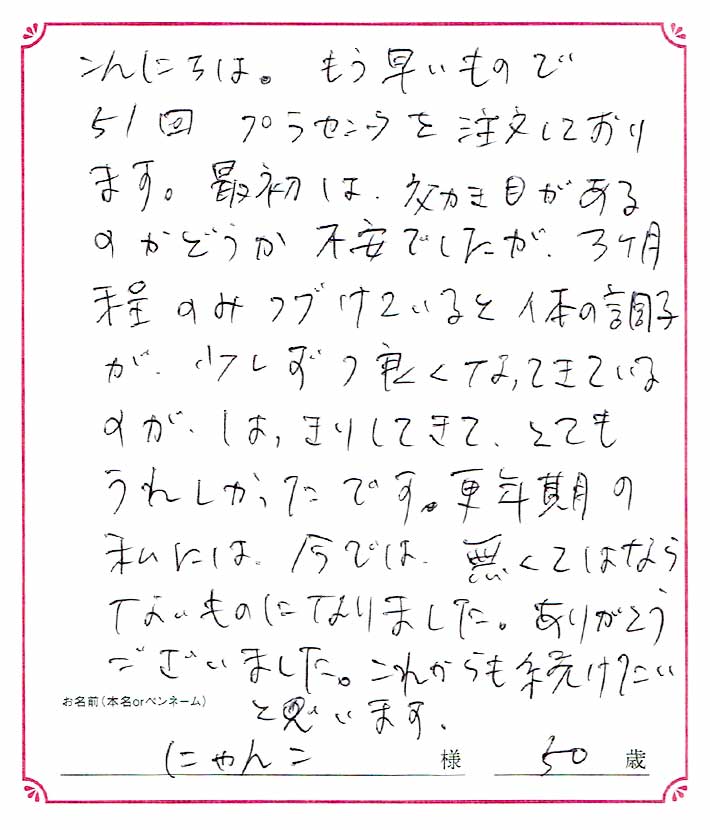 こんにちは。もう早いもので
51回 プラセンタを注文しており
ます。最初は、効き目がある
のかどうか不安でしたが、3ケ月
程のみつづけていると体の調子
が、少しずつ良くなってきている
のが、はっきりしてきて、とても
うれしかったです。更年期の
私には、今では、無くてはなら
ないものになりました。ありがとう
ございました。これからも続けたい
と思います。
お名前(本名orペンネーム)
にゃんこ 様 50 歳